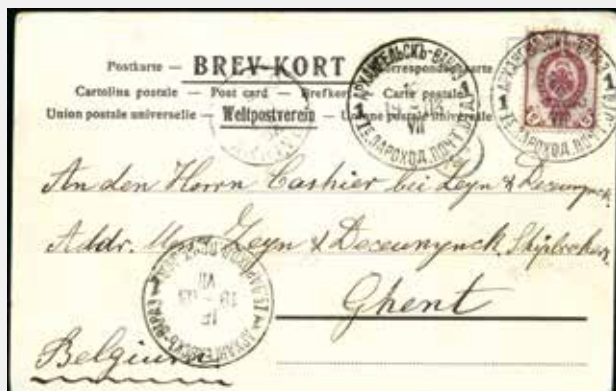 Postkarte — BREV-KORT — Correspondenzkarte
Cartolina postale — Post card — Brefkort — Carte postale
Union postale universelle — Weltpostverein — Union postale universelle
АРХАНГЕЛЬСКЪ-ВАРДЭ
1 1
VII
ПАРОХОД. ПОЧТ. ОТД.
An den Herrn Cashier bei Zeyn & Deceunynck
Addr. Mess. Zeyn & Deceunynck, Shipbrokers
Ghent
Belgium
АРХАНГЕЛЬСКЪ-ВАРДЭ